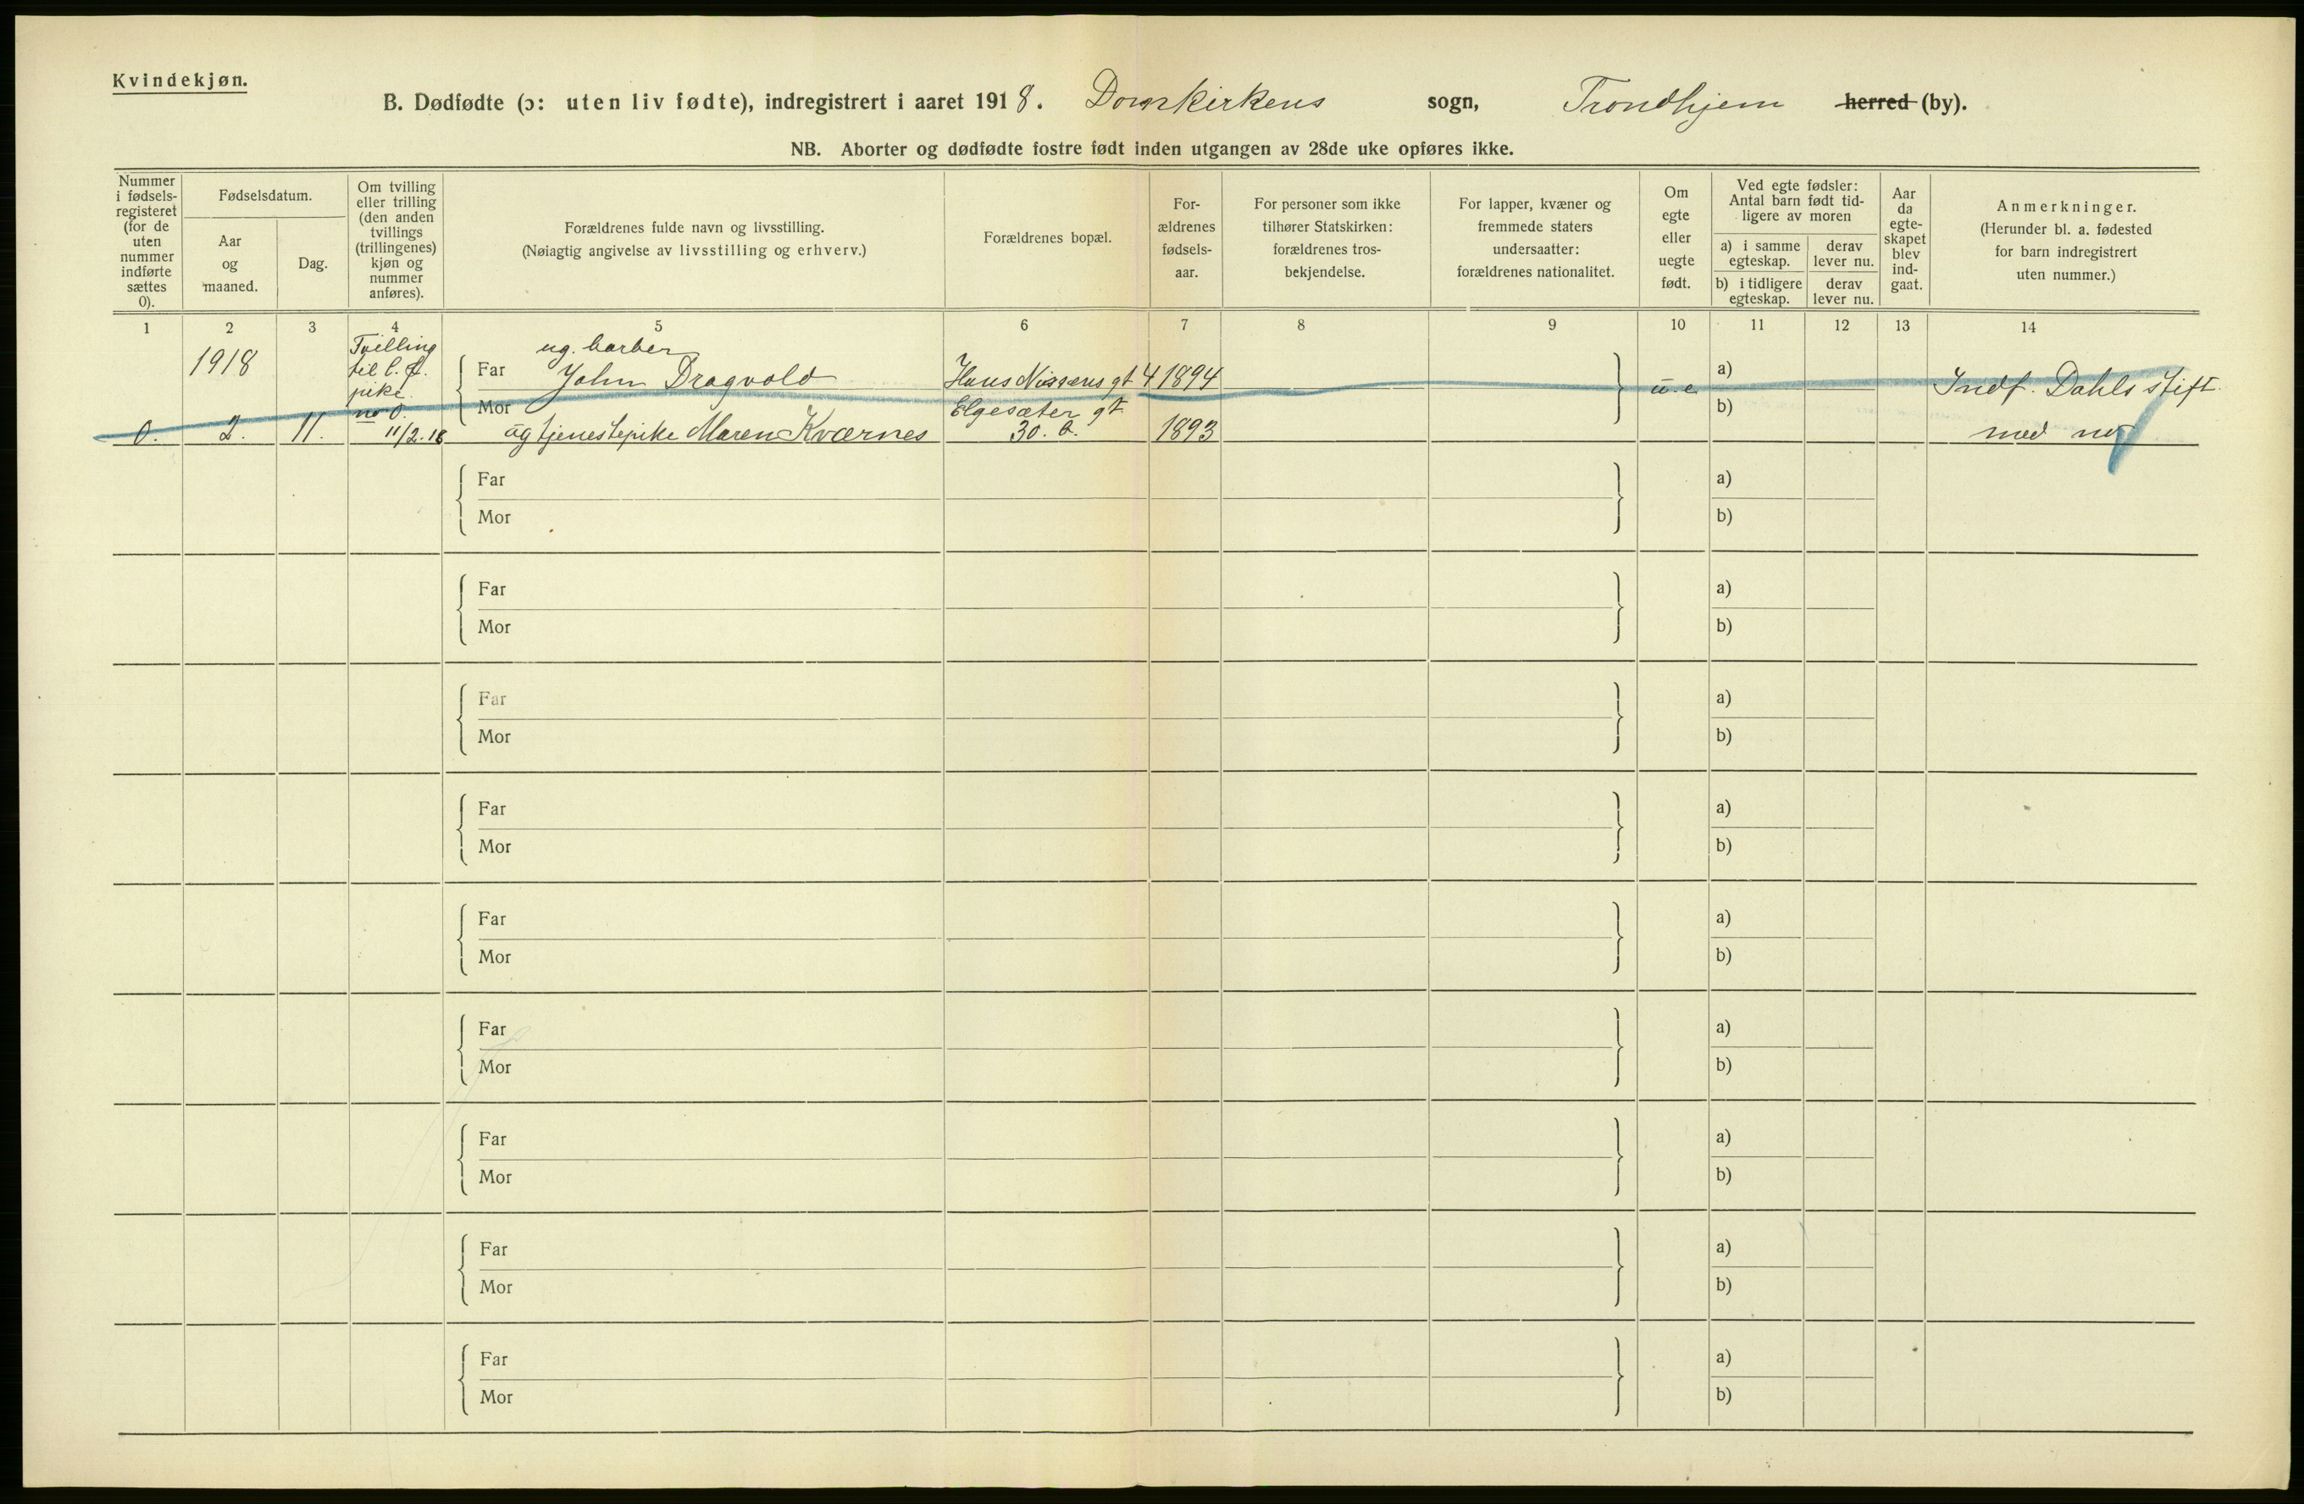 Kvindekjøn.
B. Dødfødte (ɔ: uten liv fødte), indregistrert i aaret 1918. Domkirkens sogn, Trondhjem herred (by).
NB. Aborter og dødfødte fostre født inden utgangen av 28de uke opføres ikke.
Nummer
i fødsels-
registeret
(for de
uten
nummer
indførte
sættes
0).
Fødselsdatum.
Aar
og
maaned.
Dag.
Om tvilling
eller trilling
(den anden
tvillings
(trillingenes)
kjøn og
nummer
anføres).
Forældrenes fulde navn og livsstilling.
(Nøiagtig angivelse av livsstilling og erhverv.)
Forældrenes bopæl.
For-
ældrenes
fødsels-
aar.
For personer som ikke
tilhører Statskirken:
forældrenes tros-
bekjendelse.
For lapper, kvæner og
fremmede staters
undersaatter:
forældrenes nationalitet.
Om
egte
eller
uegte
født.
Ved egte fødsler:
Antal barn født tid-
ligere av moren
a) i samme
egteskap.
derav
lever nu.
b) i tidligere
egteskap.
derav
lever nu.
Aar
da
egte-
skapet
blev
ind-
gaat.
Anmerkninger.
(Herunder bl. a. fødested
for barn indregistrert
uten nummer.)
1 2 3 4 5 6 7 8 9 10 11 12 13 14
1918
Tvilling
til l. f.
pike.
no 0.
11/2.18
0. 2. 11.
ug. barber
Far John Dragvold Hans Nissens gt 4 1894
Mor Elgesæter gt
ug tjenestepike Maren Kværnes 30. b. 1893
u.e
a)
b)
Indf. Dahls stift.
med no
Far a)
Mor b)
Far a)
Mor b)
Far a)
Mor b)
Far a)
Mor b)
Far a)
Mor b)
Far a)
Mor b)
Far a)
Mor b)
Far a)
Mor b)
Far a)
Mor b)